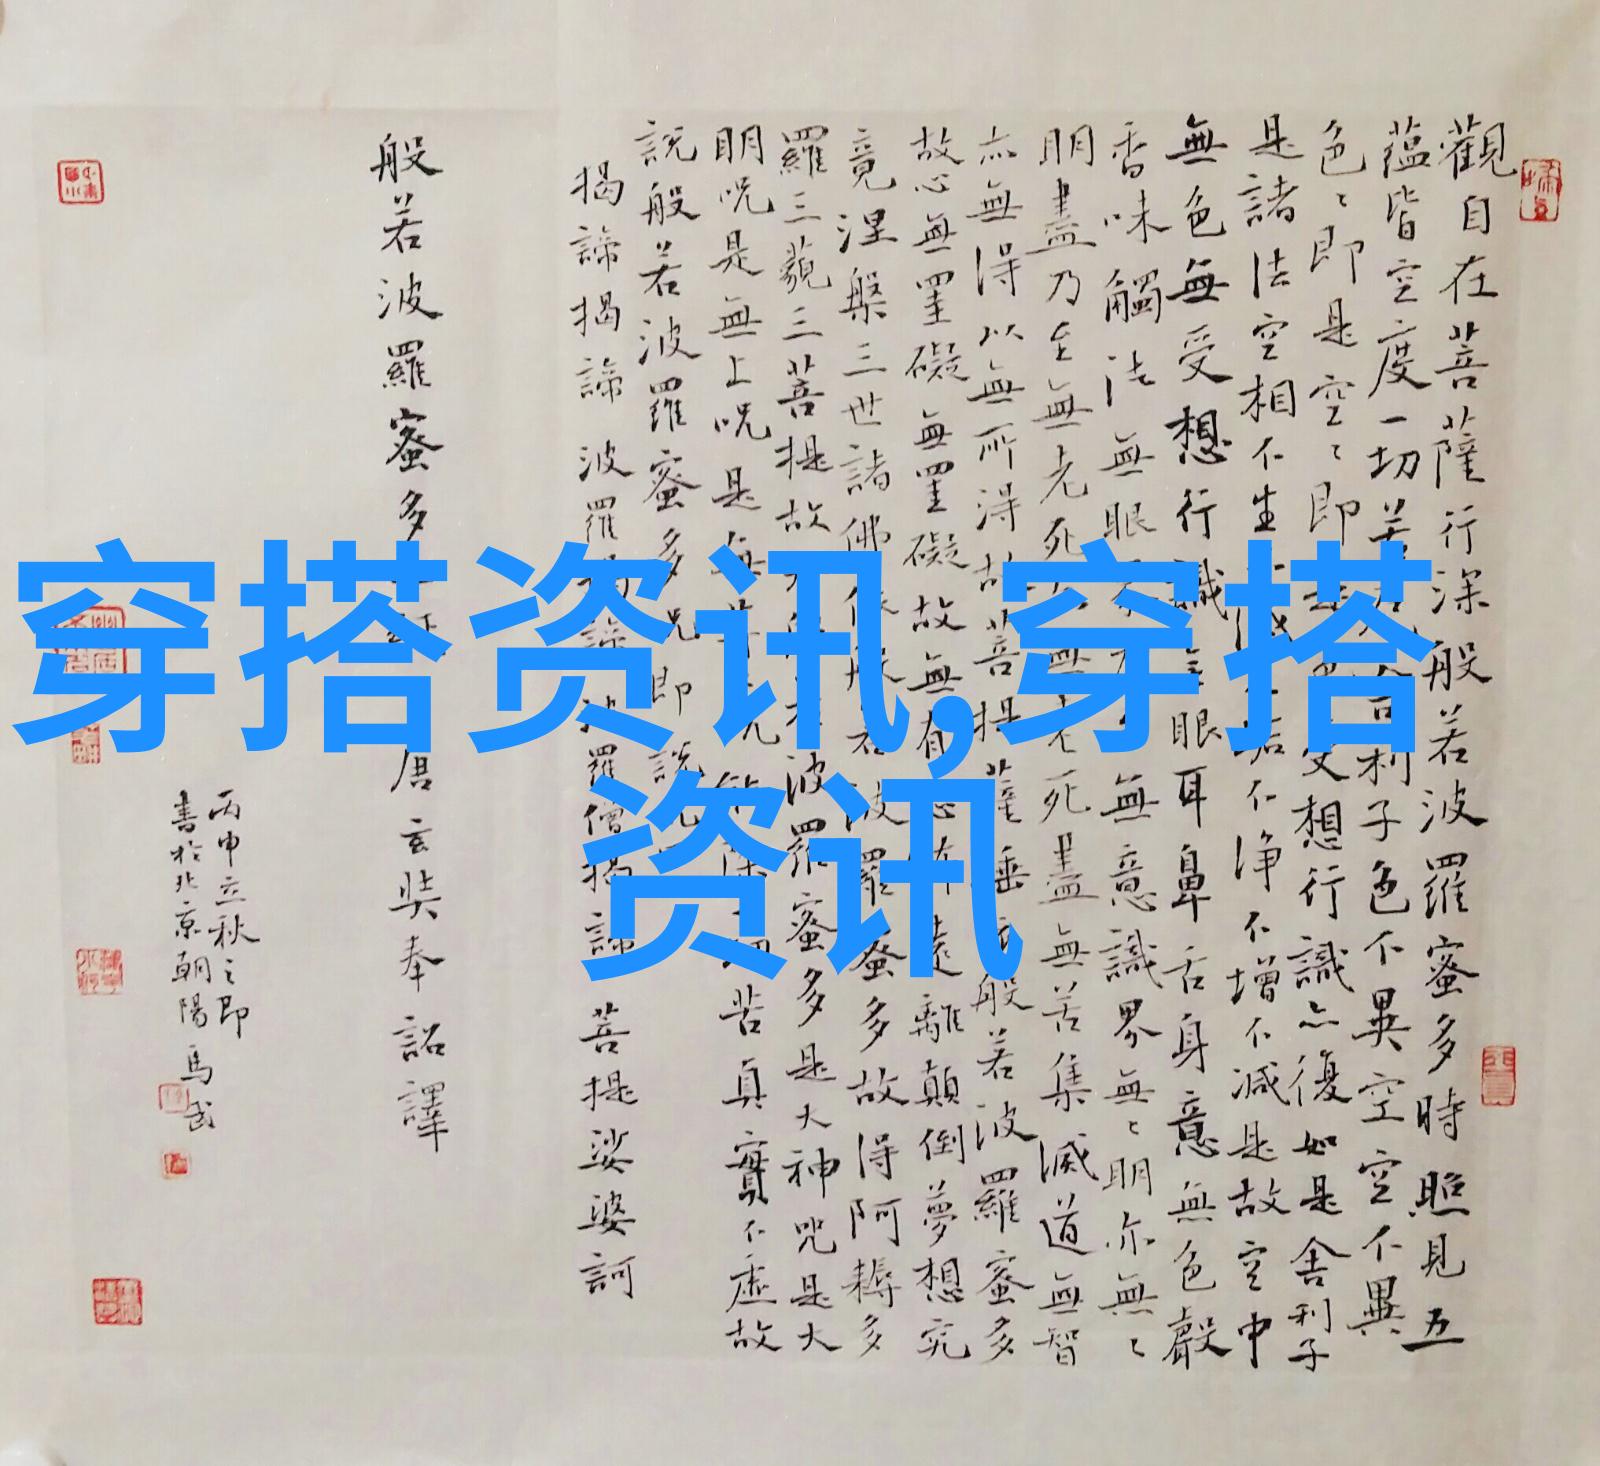 觀自在菩薩行深般若波羅蜜多時照見五
蘊皆空度一切苦利子色不異空空不異
色〻即是空〻即受想行識亦復如是舍利子
是諸法空相不生垢不淨不增不減是故空中
無色無受想行識無眼耳鼻舌身意無色聲
香味觸法無眼無意識界無〻明亦無〻
明盡乃至無老死老死盡無苦集滅道無智
亦無得以無所得故菩提薩埵般若波羅蜜多
故心無罣礙無罣礙故無有恐怖遠離顛倒夢想究
竟涅槃三世諸佛依般若波羅蜜多故得阿耨多
羅三藐三菩提故波羅蜜多是大神咒是大
明咒是無上咒是無等能除苦真實不虛故
說般若波羅蜜多咒即說
揭諦揭諦 波羅諦 波羅僧揭諦 菩提娑婆訶
般若波羅蜜多 唐玄奘奉詔譯
丙申立秋之即
書於北京朝陽 馬武
穿搭资讯,穿搭
资讯